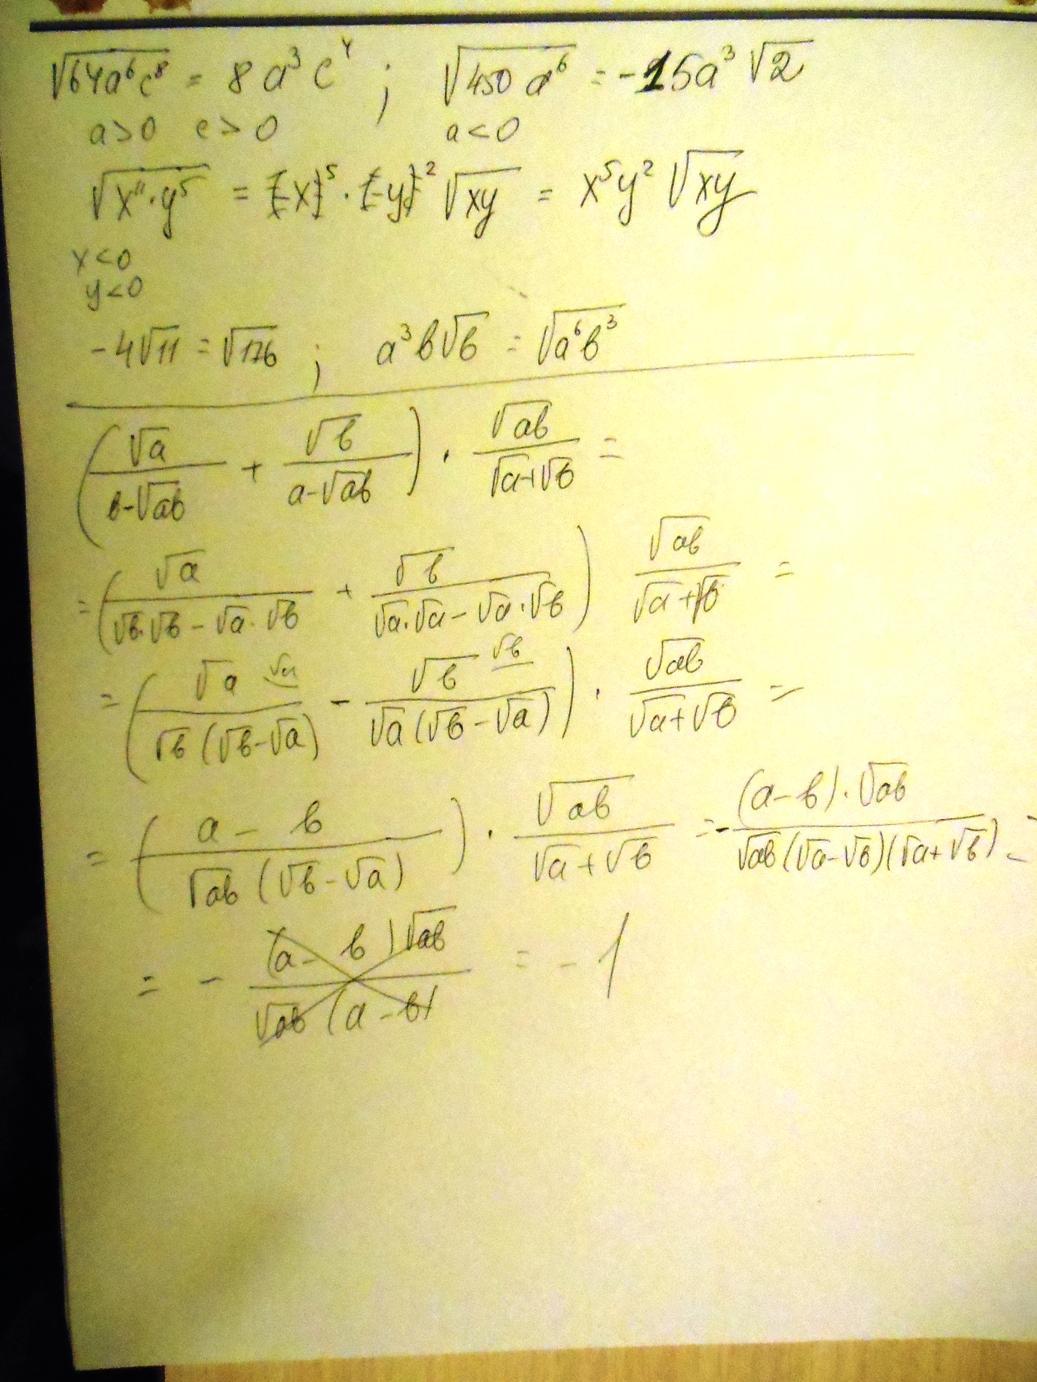 √64a⁶c⁸ = 8a³c⁴ ; √450a⁶ = -15a³√2
a>0 c>0 a<0
√x¹¹·y⁵ = (-x)⁵·(-y)² √xy = x⁵y² √xy
x<0
y<0
-4√11 = √176 ; a³b√b = √a⁶b³
(√a/(b-√ab) + √b/(a-√ab)) · √ab/(√a+√b) =
= (√a/(√b·√b - √a·√b) + √b/(√a·√a - √a·√b)) √ab/(√a+√b) =
= (√a √a/(√b(√b-√a)) - √b √b/(√a(√b-√a))) · √ab/(√a+√b) =
= ((a - b)/(√ab(√b-√a))) · √ab/(√a+√b) = -(a-b)·√ab/(√ab(√a-√b)(√a+√b)) =
= - (a-b)√ab/(√ab(a-b)) = -1